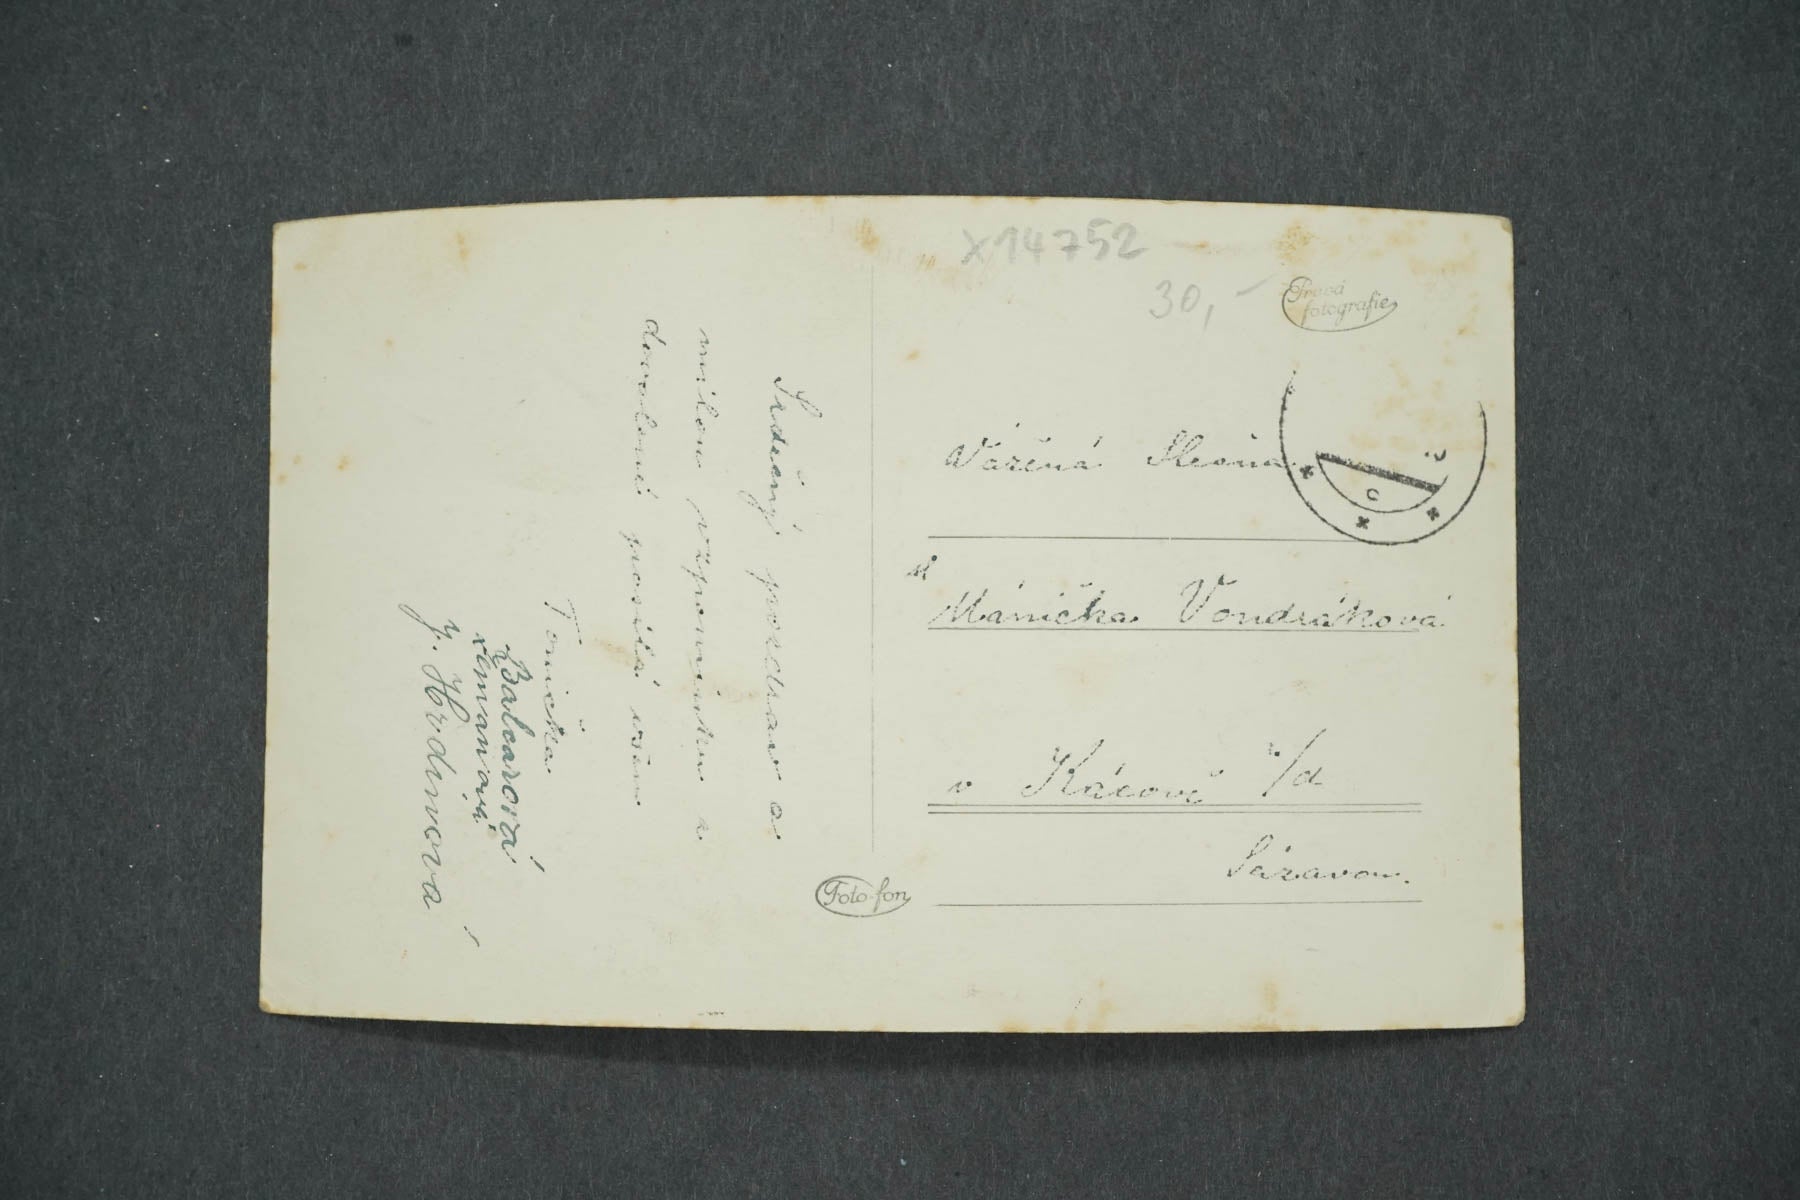 x14752
30,-
Pravá
fotografie
Vážená Slečna
Mánička Vondráková
v Kácově n/d
Sázavou.
Foto-fon
Srdečný pozdrav a
milou vzpomínku z
dovolené posílá všem
Tonička
Balcarová
Zemanová
J. Hrdinová